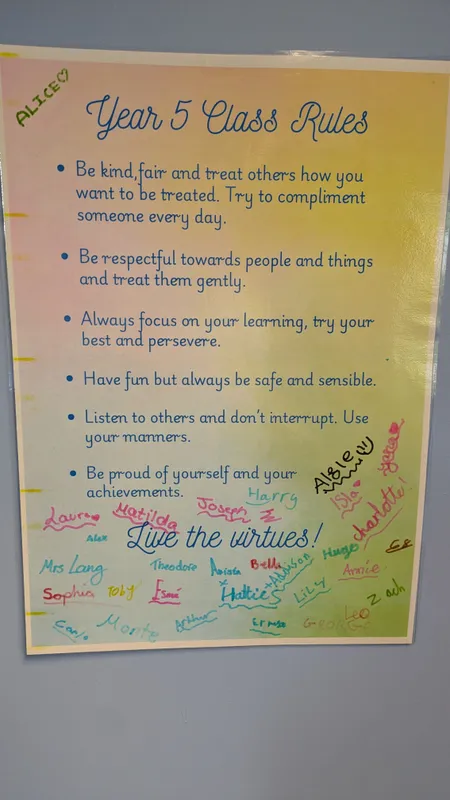 ALICE
Year 5 Class Rules
• Be kind,fair and treat others how you
want to be treated. Try to compliment
someone every day.
• Be respectful towards people and things
and treat them gently.
• Always focus on your learning, try your
best and persevere.
• Have fun but always be safe and sensible.
• Listen to others and don't interrupt. Use
your manners.
• Be proud of yourself and your
achievements.
Harry
Algie
Isla
Laura
Matilda
Joseph
charlotte!
Alex
Live the virtues!
Hugo
Mrs Lang
Theodore
Bella
Addison
Annie
Sophia
Toby
Esmé
Hattie
LiLy
Zach
Monte
Arthur
George
Leo